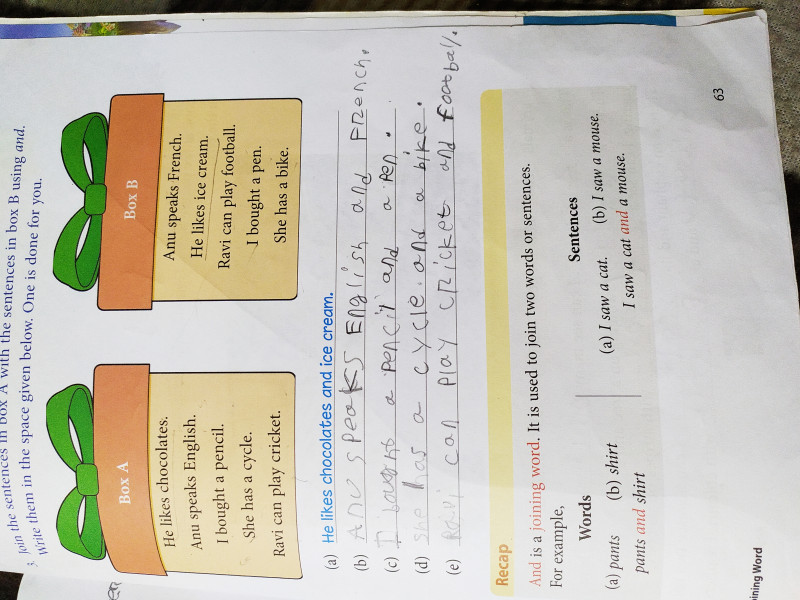 3. Join the sentences in box A with the sentences in box B using and.
Write them in the space given below. One is done for you.
Box A
He likes chocolates.
Anu speaks English.
I bought a pencil.
She has a cycle.
Ravi can play cricket.
Box B
Anu speaks French.
He likes ice cream.
Ravi can play football.
I bought a pen.
She has a bike.
(a) He likes chocolates and ice cream.
(b) Anu speaks English and French.
(c) I a pencil and a pen.
(d) She has a cycle. and a bike.
(e) Ravi can play cricket and football.
Recap
And is a joining word. It is used to join two words or sentences.
For example,
Words
(a) pants (b) shirt
pants and shirt
Sentences
(a) I saw a cat. (b) I saw a mouse.
I saw a cat and a mouse.
63
ining Word